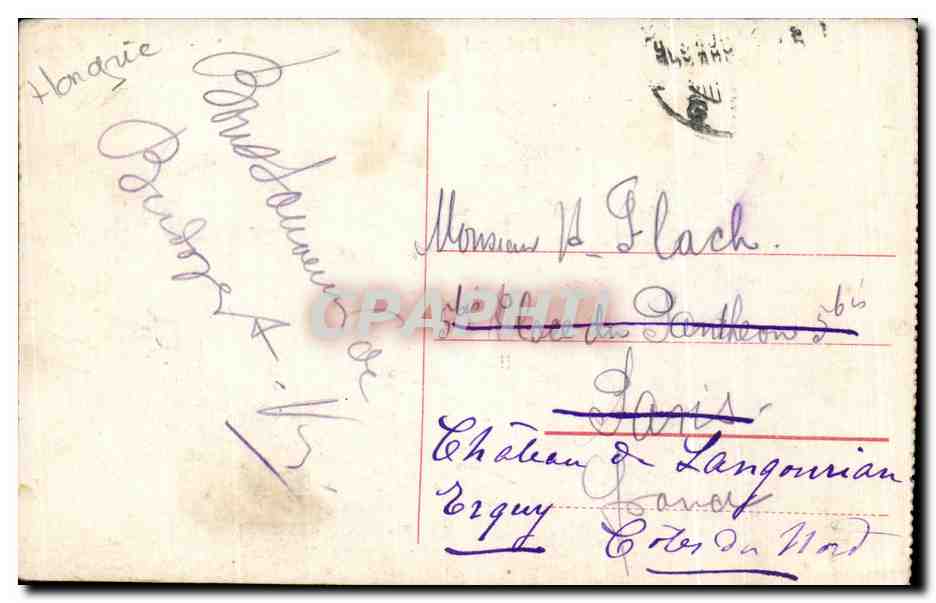 Hongrie
Bons Souvenirs de
Budapest.
Monsieur V. Flach.
5bis Place du Pantheon 5bis
Paris.
Château de Langourian
France
Erquy Côtes du Nord
CPAPHIL